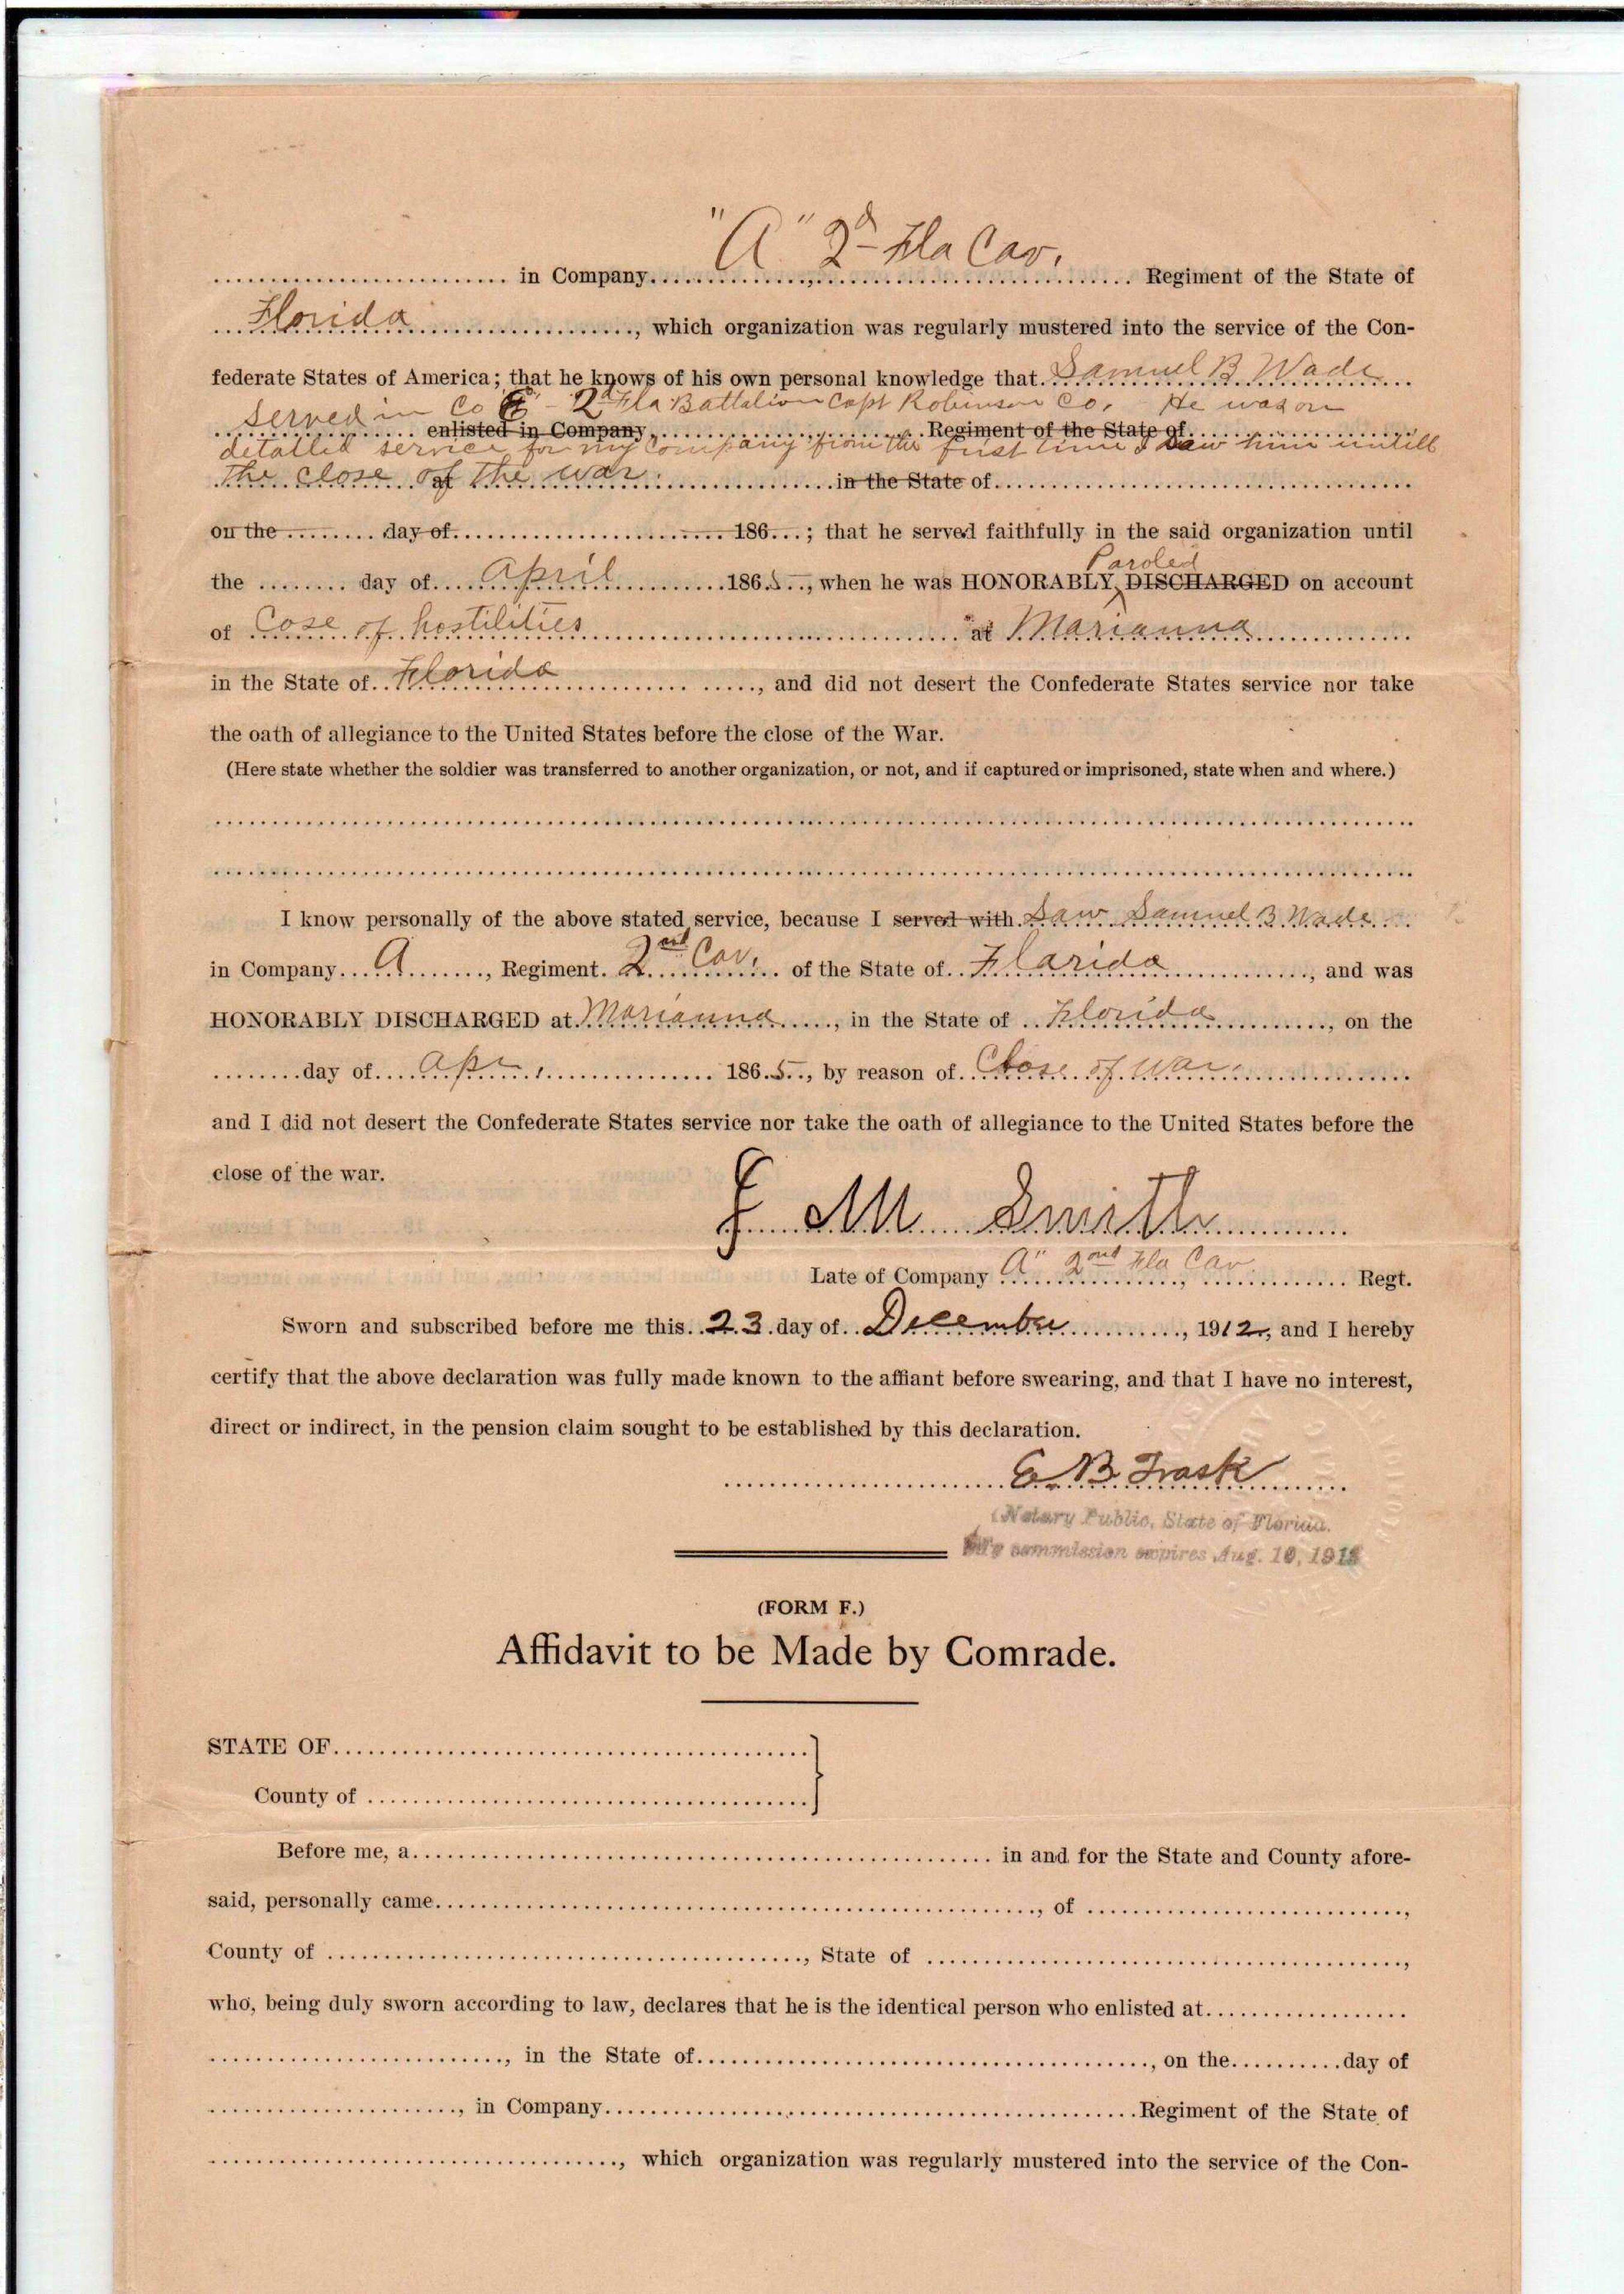 "A" 2d Fla Cav.
........ in Company........ Regiment of the State of
Florida........, which organization was regularly mustered into the service of the Con-
federate States of America; that he knows of his own personal knowledge that Samuel B Wade
Served in Co 2d Fla Battalion Capt Robinson Co. He was on
enlisted in Company........ Regiment of the State of........
detailed service for my company from the first time I saw him untill
the close at of the war. ........in the State of........
on the ........ day of........ 186...; that he served faithfully in the said organization until
Paroled
the ........ day of....April........186.5.., when he was HONORABLY DISCHARGED on account
of Cose of hostilities........ at Marianna........
in the State of..Florida........, and did not desert the Confederate States service nor take
the oath of allegiance to the United States before the close of the War.
(Here state whether the soldier was transferred to another organization, or not, and if captured or imprisoned, state when and where.)
I know personally of the above stated service, because I served with Saw Samuel B Wade
in Company...A......., Regiment. 2nd Cav. of the State of..Florida........, and was
HONORABLY DISCHARGED at Marianna......, in the State of ..Florida........, on the
........day of....Apr........ 186.5.., by reason of..Close of War........
and I did not desert the Confederate States service nor take the oath of allegiance to the United States before the
close of the war.
J M Smith
Late of Company A" 2ond Fla Cav ........ Regt.
Sworn and subscribed before me this..23.day of..December........, 1912, and I hereby
certify that the above declaration was fully made known to the affiant before swearing, and that I have no interest,
direct or indirect, in the pension claim sought to be established by this declaration.
E. B. Trask
Notary Public, State of Florida.
My commission expires Aug. 10, 191
(FORM F.)
Affidavit to be Made by Comrade.
STATE OF........
County of ........
Before me, a........ in and for the State and County afore-
said, personally came........, of ........,
County of ........, State of ........,
who, being duly sworn according to law, declares that he is the identical person who enlisted at........
........, in the State of........, on the........day of
........, in Company........Regiment of the State of
........, which organization was regularly mustered into the service of the Con-